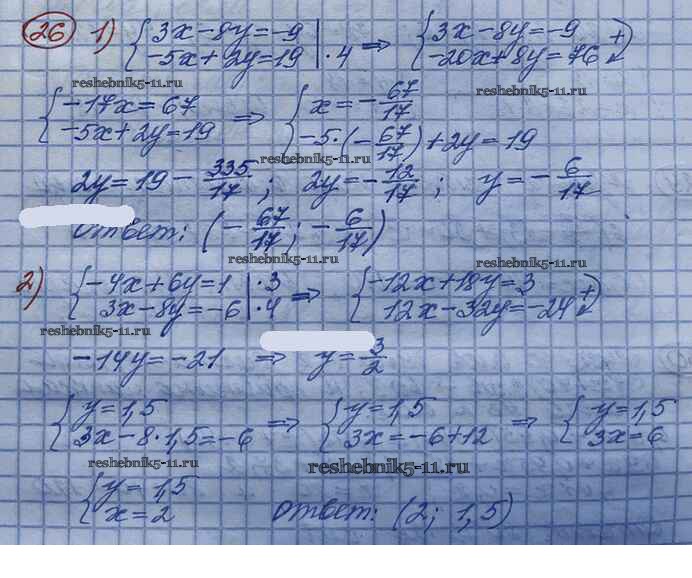 26 1) { 3x-8y=-9 | ⇒ { 3x-8y=-9 +
-5x+2y=19 | ·4 -20x+8y=76
reshebnik5-11.ru reshebnik5-11.ru
{ -17x=67 ⇒ { x=-67/17
-5x+2y=19 -5·(-67/17)+2y=19
reshebnik5-11.ru
2y=19-335/17; 2y=-12/17; y=-6/17
Ответ: (-67/17; -6/17)
reshebnik5-11.ru reshebnik5-11.ru
2) { -4x+6y=1 | ·3 ⇒ { -12x+18y=3 +
3x-8y=-6 | ·4 12x-32y=-24
reshebnik5-11.ru
-14y=-21 ⇒ y=3/2
{ y=1,5 ⇒ { y=1,5 ⇒ { y=1,5
3x-8·1,5=-6 3x=-6+12 3x=6
reshebnik5-11.ru reshebnik5-11.ru
{ y=1,5
x=2 Ответ: (2; 1,5)